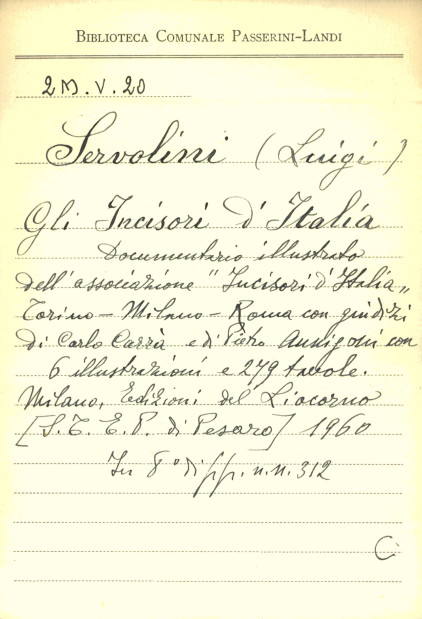 BIBLIOTECA COMUNALE PASSERINI-LANDI
2M.V.20
Servolini (Luigi)
Gli Incisori d'Italia
Documentario illustrato
dell'associazione "Incisori d'Italia"
Torino - Milano - Roma con giudizi
di Carlo Carrà e di Pietro Annigoni con
6 illustrazioni e 279 tavole.
Milano, Edizioni del Liocorno
[S.T.E.P. di Pesaro] 1960
In 8° di pp. n.n. 312
C